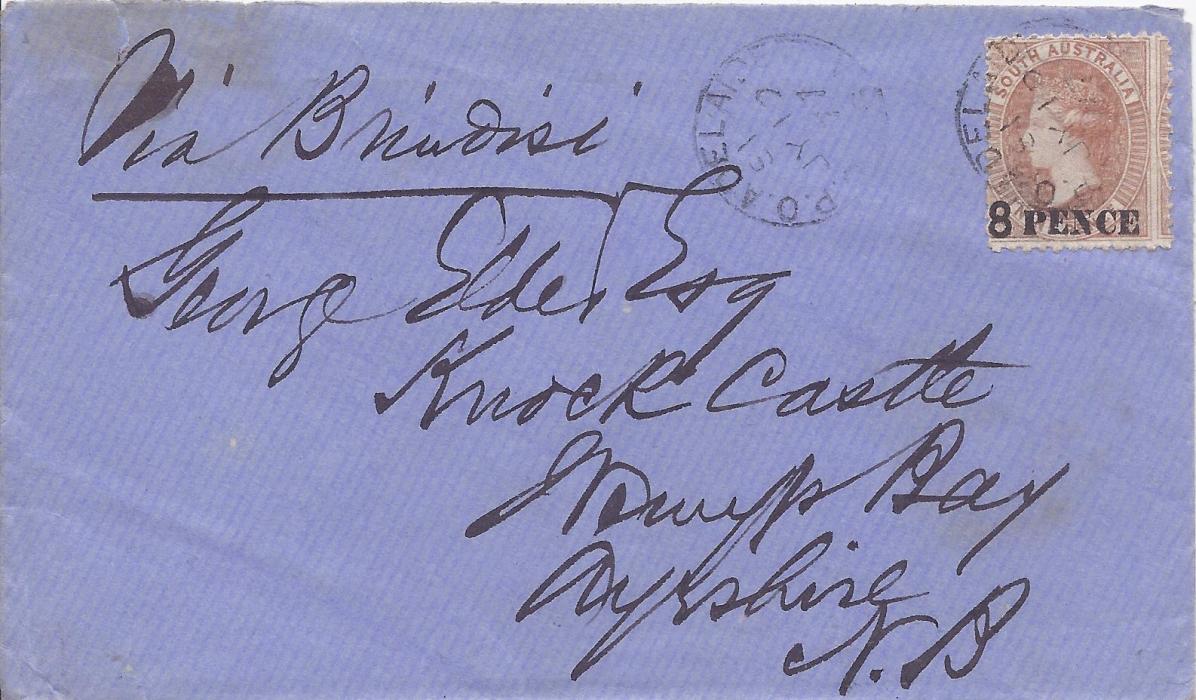 Via Brindisi
SOUTH AUSTRALIA
8 PENCE
G.P.O. ADELAIDE
George Elder Esq
Knock Castle
Wemyss Bay
Ayrshire
N.B